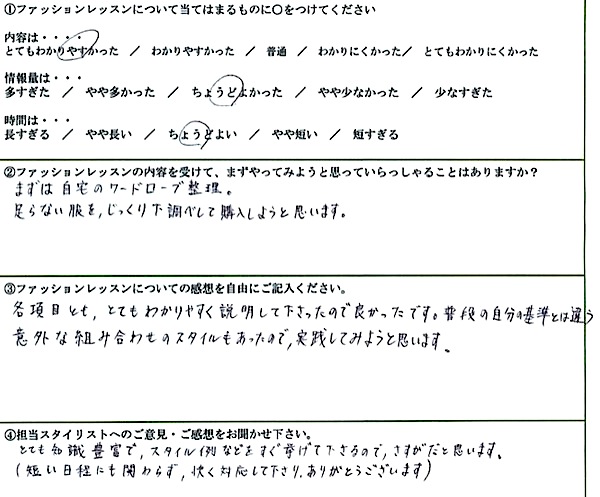 ①ファッションレッスンについて当てはまるものに〇をつけてください
内容は・・・・
とてもわかりやすかった ／ わかりやすかった ／ 普通 ／ わかりにくかった／ とてもわかりにくかった
情報量は・・・・
多すぎた ／ やや多かった ／ ちょうどよかった ／ やや少なかった ／ 少なすぎた
時間は・・・
長すぎる ／ やや長い ／ ちょうどよい ／ やや短い ／ 短すぎる
②ファッションレッスンの内容を受けて、まずやってみようと思っていらっしゃることはありますか？
まずは自宅のワードローブ整理。
足らない服を,じっくり下調べして購入しようと思います。
③ファッションレッスンについての感想を自由にご記入ください。
各項目とも,とてもわかりやすく説明して下さったので良かったです。普段の自分の基準とは違う
意外な組み合わせのスタイルもあったので,実践してみようと思います。
④担当スタイリストへのご意見・ご感想をお聞かせ下さい。
とても知識豊富で,スタイル例などをすぐ挙げて下さるので,さすがだと思います。
(短い日程にも関わらず,快く対応して下さり,ありがとうございます)